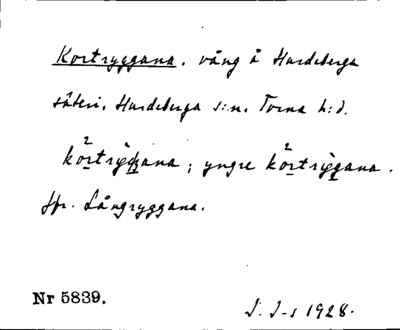 Kortryggana. vång å Hardeberga
säteri. Hardeberga s:n. Torna h:d.
kòrtrÿg̀gana; yngre kòrtrỳgana.
Jfr. Långryggana.
Nr 5839.
J. J-s 1928.